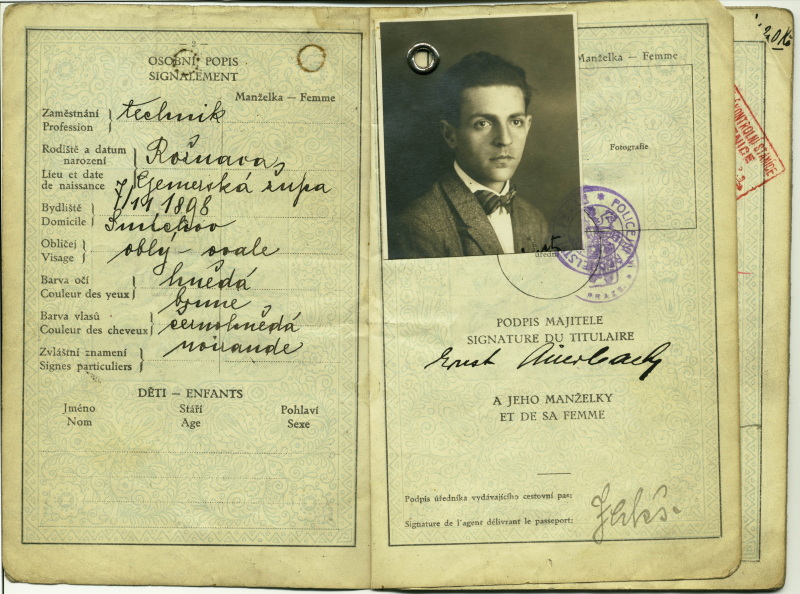 OSOBNÍ POPIS
SIGNALEMENT
Manželka — Femme
Zaměstnání
Profession
technik
Rodiště a datum
narození
Rožnava,
Lieu et date
de naissance
Gemerská župa
7/11 1898
Bydliště
Domicile
Smíchov
Obličej
Visage
oblý - ovale
Barva očí
Couleur des yeux
hnědá
brune
Barva vlasů
Couleur des cheveux
černohnědá
noirande
Zvláštní znamení
Signes particuliers
DĚTI — ENFANTS
Jméno Stáří Pohlaví
Nom Age Sexe
Manželka — Femme
Fotografie
úřední
POLICEJNÍ
PRAZE
PODPIS MAJITELE
SIGNATURE DU TITULAIRE
Ernst Auerbach
A JEHO MANŽELKY
ET DE SA FEMME
Podpis úředníka vydávajícího cestovní pas:
Signature de l'agent délivrant le passeport:
KONTROLNÍ STANICE